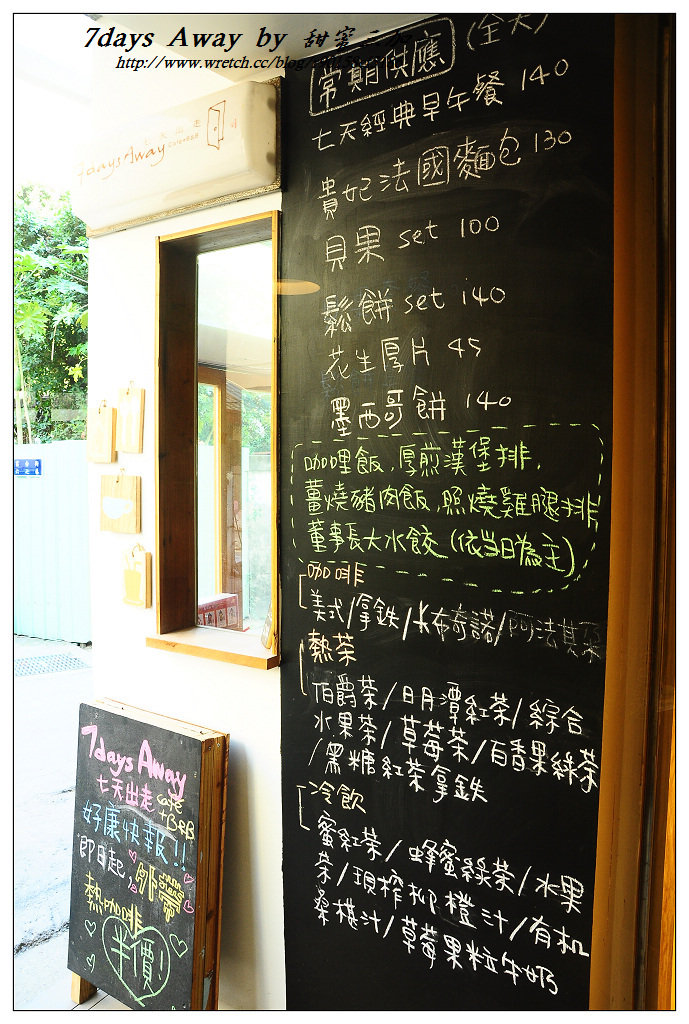 7days Away by 甜蜜
http://www.wretch.cc/blog/
7days Away
常期供應 (全天)
七天經典早午餐 140
貴妃法國麵包 130
貝果 set 100
鬆餅 set 140
花生厚片 45
墨西哥餅 140
咖哩飯,厚煎漢堡排,
薑燒豬肉飯,照燒雞腿排
董事長大水餃(依當日為主)
咖啡
美式/拿鉄/卡布奇諾/阿法其朵
熱茶
伯爵茶/日月潭紅茶/綜合
水果茶/草莓茶/百香果綠茶
/黑糖紅茶拿鉄
冷飲
蜜紅茶/蜂蜜綠茶/水果
茶/現榨柳橙汁/有机
桑椹汁/草莓果粒牛奶
7days Away
七天出走 cafe
+B&B
好康快報!!
即日起,外帶
熱咖啡
半價!